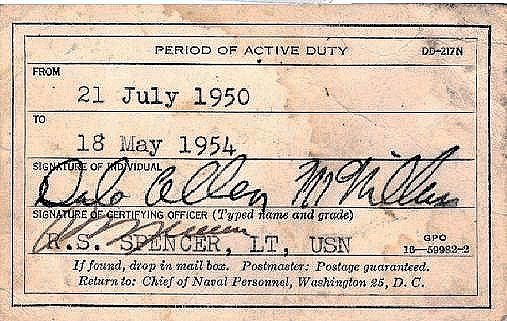 PERIOD OF ACTIVE DUTY DD-217N
FROM
21 July 1950
TO
18 May 1954
SIGNATURE OF INDIVIDUAL
Dale Allen McMillen
SIGNATURE OF CERTIFYING OFFICER (Typed name and grade)
R.S. SPENCER, LT, USN
GPO
16-59982-2
If found, drop in mail box. Postmaster: Postage guaranteed.
Return to: Chief of Naval Personnel, Washington 25, D. C.